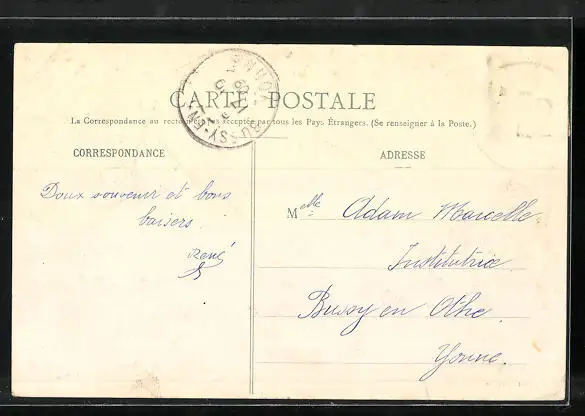 CARTE POSTALE
La Correspondance au recto n'est pas acceptée par tous les Pays Étrangers. (Se renseigner à la Poste.)
CORRESPONDANCE
ADRESSE
Doux souvenir et bons
baisers
René
Melle Adam Marcelle
Institutrice
Bussy en Othe.
Yonne.
BUSSY-EN-
YONNE